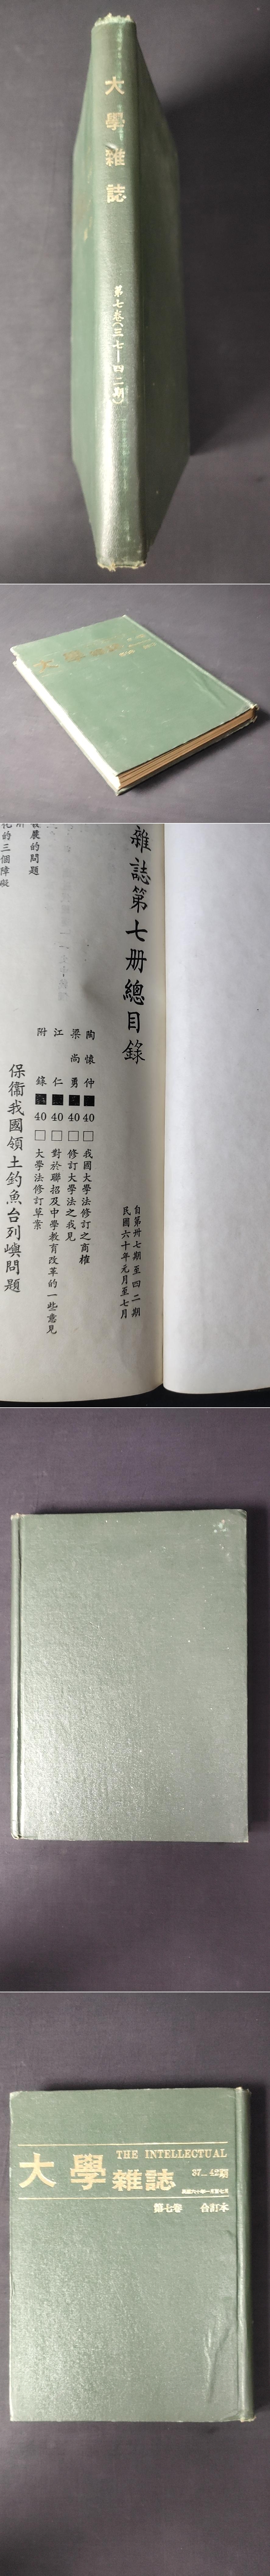 大學雜誌
第七卷(三七—四二期)
雜誌第七册總目錄
自第卅七期至四二期
民國六十年元月至七月
陶懷仲■40□我國大學法修訂之商榷
梁尚勇■40□修訂大學法之我見
江仁■40□對於聯招及中學教育改革的一些意見
附錄■40□大學法修訂草案
保衞我國領土釣魚台列嶼問題
發展的問題
化的三個障礙
THE INTELLECTUAL
大學雜誌
37—42期
第七卷 合訂本